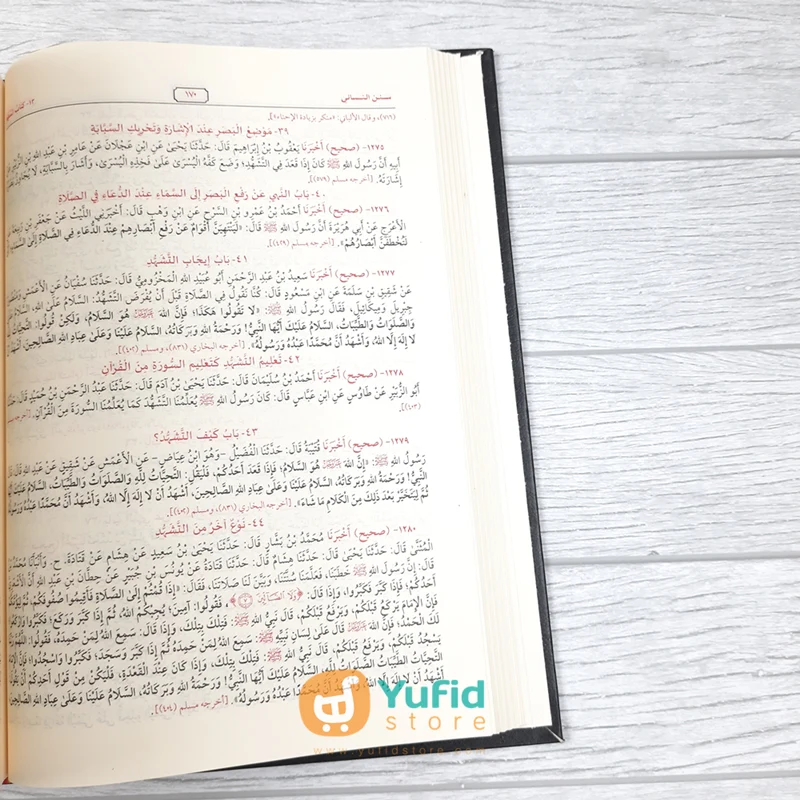 سنن النسائي
١٧٠
١٣- كتاب
(٧١٦)، وقال الألباني: «منكر بزيادة الإحناء»].
٣٩- مَوْضِعُ الْبَصَرِ عِنْدَ الْإِشَارَةِ وَتَحْرِيكِ السَّبَّابَةِ
١٢٧٥- (صحيح) أَخْبَرَنَا يَعْقُوبُ بْنُ إِبْرَاهِيمَ قَالَ: حَدَّثَنَا يَحْيَى عَنْ ابْنِ عَجْلَانَ عَنْ عَامِرِ بْنِ عَبْدِ اللهِ بْنِ الزُّبَيْرِ عَنْ
أَبِيهِ أَنَّ رَسُولَ اللهِ ﷺ كَانَ إِذَا قَعَدَ فِي التَّشَهُّدِ؛ وَضَعَ كَفَّهُ الْيُسْرَى عَلَى فَخِذِهِ الْيُسْرَى، وَأَشَارَ بِالسَّبَّابَةِ، لَا يُجَاوِزُ
إِشَارَتَهُ. [أخرجه مسلم (٥٧٩)].
٤٠- بَابُ النَّهْيِ عَنْ رَفْعِ الْبَصَرِ إِلَى السَّمَاءِ عِنْدَ الدُّعَاءِ فِي الصَّلَاةِ
١٢٧٦- (صحيح) أَخْبَرَنَا أَحْمَدُ بْنُ عَمْرِو بْنِ السَّرْحِ عَنِ ابْنِ وَهْبٍ قَالَ: أَخْبَرَنِي اللَّيْثُ عَنْ جَعْفَرِ بْنِ رَبِيعَةَ
الْأَعْرَجِ عَنْ أَبِي هُرَيْرَةَ أَنَّ رَسُولَ اللهِ ﷺ قَالَ: «لَيَنْتَهِيَنَّ أَقْوَامٌ عَنْ رَفْعِ أَبْصَارِهِمْ عِنْدَ الدُّعَاءِ فِي الصَّلَاةِ إِلَى السَّمَاءِ
لَتُخْطَفَنَّ أَبْصَارُهُمْ». [أخرجه مسلم (٤٢٩)].
٤١- بَابُ إِيجَابِ التَّشَهُّدِ
١٢٧٧- (صحيح) أَخْبَرَنَا سَعِيدُ بْنُ عَبْدِ الرَّحْمَنِ أَبُو عُبَيْدِ اللهِ الْمَخْزُومِيُّ قَالَ: حَدَّثَنَا سُفْيَانُ عَنِ الْأَعْمَشِ وَمَنْصُورٍ
عَنْ شَقِيقِ بْنِ سَلَمَةَ عَنِ ابْنِ مَسْعُودٍ قَالَ: كُنَّا نَقُولُ فِي الصَّلَاةِ قَبْلَ أَنْ يُفْرَضَ التَّشَهُّدُ: السَّلَامُ عَلَى اللهِ، السَّلَامُ عَلَى
جِبْرِيلَ وَمِيكَائِيلَ، فَقَالَ رَسُولُ اللهِ ﷺ: «لَا تَقُولُوا هَكَذَا؛ فَإِنَّ اللهَ هُوَ السَّلَامُ، وَلَكِنْ قُولُوا: التَّحِيَّاتُ
وَالصَّلَوَاتُ وَالطَّيِّبَاتُ، السَّلَامُ عَلَيْكَ أَيُّهَا النَّبِيُّ! وَرَحْمَةُ اللهِ وَبَرَكَاتُهُ، السَّلَامُ عَلَيْنَا وَعَلَى عِبَادِ اللهِ الصَّالِحِينَ، أَشْهَدُ أَنْ
لَا إِلَهَ إِلَّا اللهُ، وَأَشْهَدُ أَنَّ مُحَمَّدًا عَبْدُهُ وَرَسُولُهُ». [أخرجه البخاري (٨٣١)، ومسلم (٤٠٢)].
٤٢- تَعْلِيمُ التَّشَهُّدِ كَتَعْلِيمِ السُّورَةِ مِنَ الْقُرْآنِ
١٢٧٨- (صحيح) أَخْبَرَنَا أَحْمَدُ بْنُ سُلَيْمَانَ قَالَ: حَدَّثَنَا يَحْيَى بْنُ آدَمَ قَالَ: حَدَّثَنَا عَبْدُ الرَّحْمَنِ بْنُ حُمَيْدٍ قَالَ: حَدَّثَنَا
أَبُو الزُّبَيْرِ عَنْ طَاوُسٍ عَنِ ابْنِ عَبَّاسٍ قَالَ: كَانَ رَسُولُ اللهِ ﷺ يُعَلِّمُنَا التَّشَهُّدَ كَمَا يُعَلِّمُنَا السُّورَةَ مِنَ الْقُرْآنِ. [أخرجه مسلم
(٤٠٣)].
٤٣- بَابُ كَيْفَ التَّشَهُّدُ؟
١٢٧٩- (صحيح) أَخْبَرَنَا قُتَيْبَةُ قَالَ: حَدَّثَنَا الْفُضَيْلُ -وَهُوَ ابْنُ عِيَاضٍ- عَنِ الْأَعْمَشِ عَنْ شَقِيقٍ عَنْ عَبْدِ اللهِ قَالَ
رَسُولُ اللهِ ﷺ: «إِنَّ اللهَ هُوَ السَّلَامُ؛ فَإِذَا قَعَدَ أَحَدُكُمْ، فَلْيَقُلِ: التَّحِيَّاتُ لِلَّهِ وَالصَّلَوَاتُ وَالطَّيِّبَاتُ، السَّلَامُ عَلَيْكَ أَيُّهَا
النَّبِيُّ! وَرَحْمَةُ اللهِ وَبَرَكَاتُهُ، السَّلَامُ عَلَيْنَا وَعَلَى عِبَادِ اللهِ الصَّالِحِينَ، أَشْهَدُ أَنْ لَا إِلَهَ إِلَّا اللهُ، وَأَشْهَدُ أَنَّ مُحَمَّدًا عَبْدُهُ وَرَسُولُهُ
ثُمَّ لِيَتَخَيَّرْ بَعْدَ ذَلِكَ مِنَ الْكَلَامِ مَا شَاءَ». [أخرجه البخاري (٨٣١)، ومسلم (٤٠٢)].
٤٤- نَوْعٌ آخَرُ مِنَ التَّشَهُّدِ
١٢٨٠- (صحيح) أَخْبَرَنَا مُحَمَّدُ بْنُ بَشَّارٍ قَالَ: حَدَّثَنَا يَحْيَى بْنُ سَعِيدٍ عَنْ هِشَامٍ عَنْ قَتَادَةَ. ح. وَأَنْبَأَنَا مُحَمَّدُ بْنُ
الْمُثَنَّى قَالَ: حَدَّثَنَا يَحْيَى قَالَ: حَدَّثَنَا هِشَامٌ قَالَ: حَدَّثَنَا قَتَادَةُ عَنْ يُونُسَ بْنِ جُبَيْرٍ عَنْ حِطَّانَ بْنِ عَبْدِ اللهِ أَنَّ الْأَشْعَرِيَّ
قَالَ: إِنَّ رَسُولَ اللهِ ﷺ خَطَبَنَا، فَعَلَّمَنَا سُنَّتَنَا، وَبَيَّنَ لَنَا صَلَاتَنَا، فَقَالَ: «إِذَا قُمْتُمْ إِلَى الصَّلَاةِ فَأَقِيمُوا صُفُوفَكُمْ، ثُمَّ لْيَؤُمَّكُمْ
أَحَدُكُمْ، فَإِذَا كَبَّرَ فَكَبِّرُوا، وَإِذَا قَالَ: ﴿وَلَا الضَّالِّينَ ۝٧﴾، فَقُولُوا: آمِينَ؛ يُجِبْكُمُ اللهُ، ثُمَّ إِذَا كَبَّرَ وَرَكَعَ؛ فَكَبِّرُوا
فَإِنَّ الْإِمَامَ يَرْكَعُ قَبْلَكُمْ، وَيَرْفَعُ قَبْلَكُمْ، قَالَ نَبِيُّ اللهِ ﷺ: فَتِلْكَ بِتِلْكَ، وَإِذَا قَالَ: سَمِعَ اللهُ لِمَنْ حَمِدَهُ، فَقُولُوا
لَكَ الْحَمْدُ، فَإِنَّ اللهَ قَالَ عَلَى لِسَانِ نَبِيِّهِ ﷺ: سَمِعَ اللهُ لِمَنْ حَمِدَهُ، ثُمَّ إِذَا كَبَّرَ وَسَجَدَ؛ فَكَبِّرُوا وَاسْجُدُوا؛ فَإِنَّ الْإِمَامَ
يَسْجُدُ قَبْلَكُمْ، وَيَرْفَعُ قَبْلَكُمْ، قَالَ نَبِيُّ اللهِ ﷺ: فَتِلْكَ بِتِلْكَ، وَإِذَا كَانَ عِنْدَ الْقَعْدَةِ، فَلْيَكُنْ مِنْ قَوْلِ أَحَدِكُمْ أَنْ يَقُولَ
التَّحِيَّاتُ الطَّيِّبَاتُ الصَّلَوَاتُ لِلَّهِ، السَّلَامُ عَلَيْكَ أَيُّهَا النَّبِيُّ! وَرَحْمَةُ اللهِ وَبَرَكَاتُهُ، السَّلَامُ عَلَيْنَا وَعَلَى عِبَادِ اللهِ الصَّالِحِينَ
أَشْهَدُ أَنْ لَا إِلَهَ إِلَّا اللهُ، وَأَشْهَدُ أَنَّ مُحَمَّدًا عَبْدُهُ وَرَسُولُهُ». [أخرجه مسلم (٤٠٤)].
Yufid
store
www.yufidstore.com